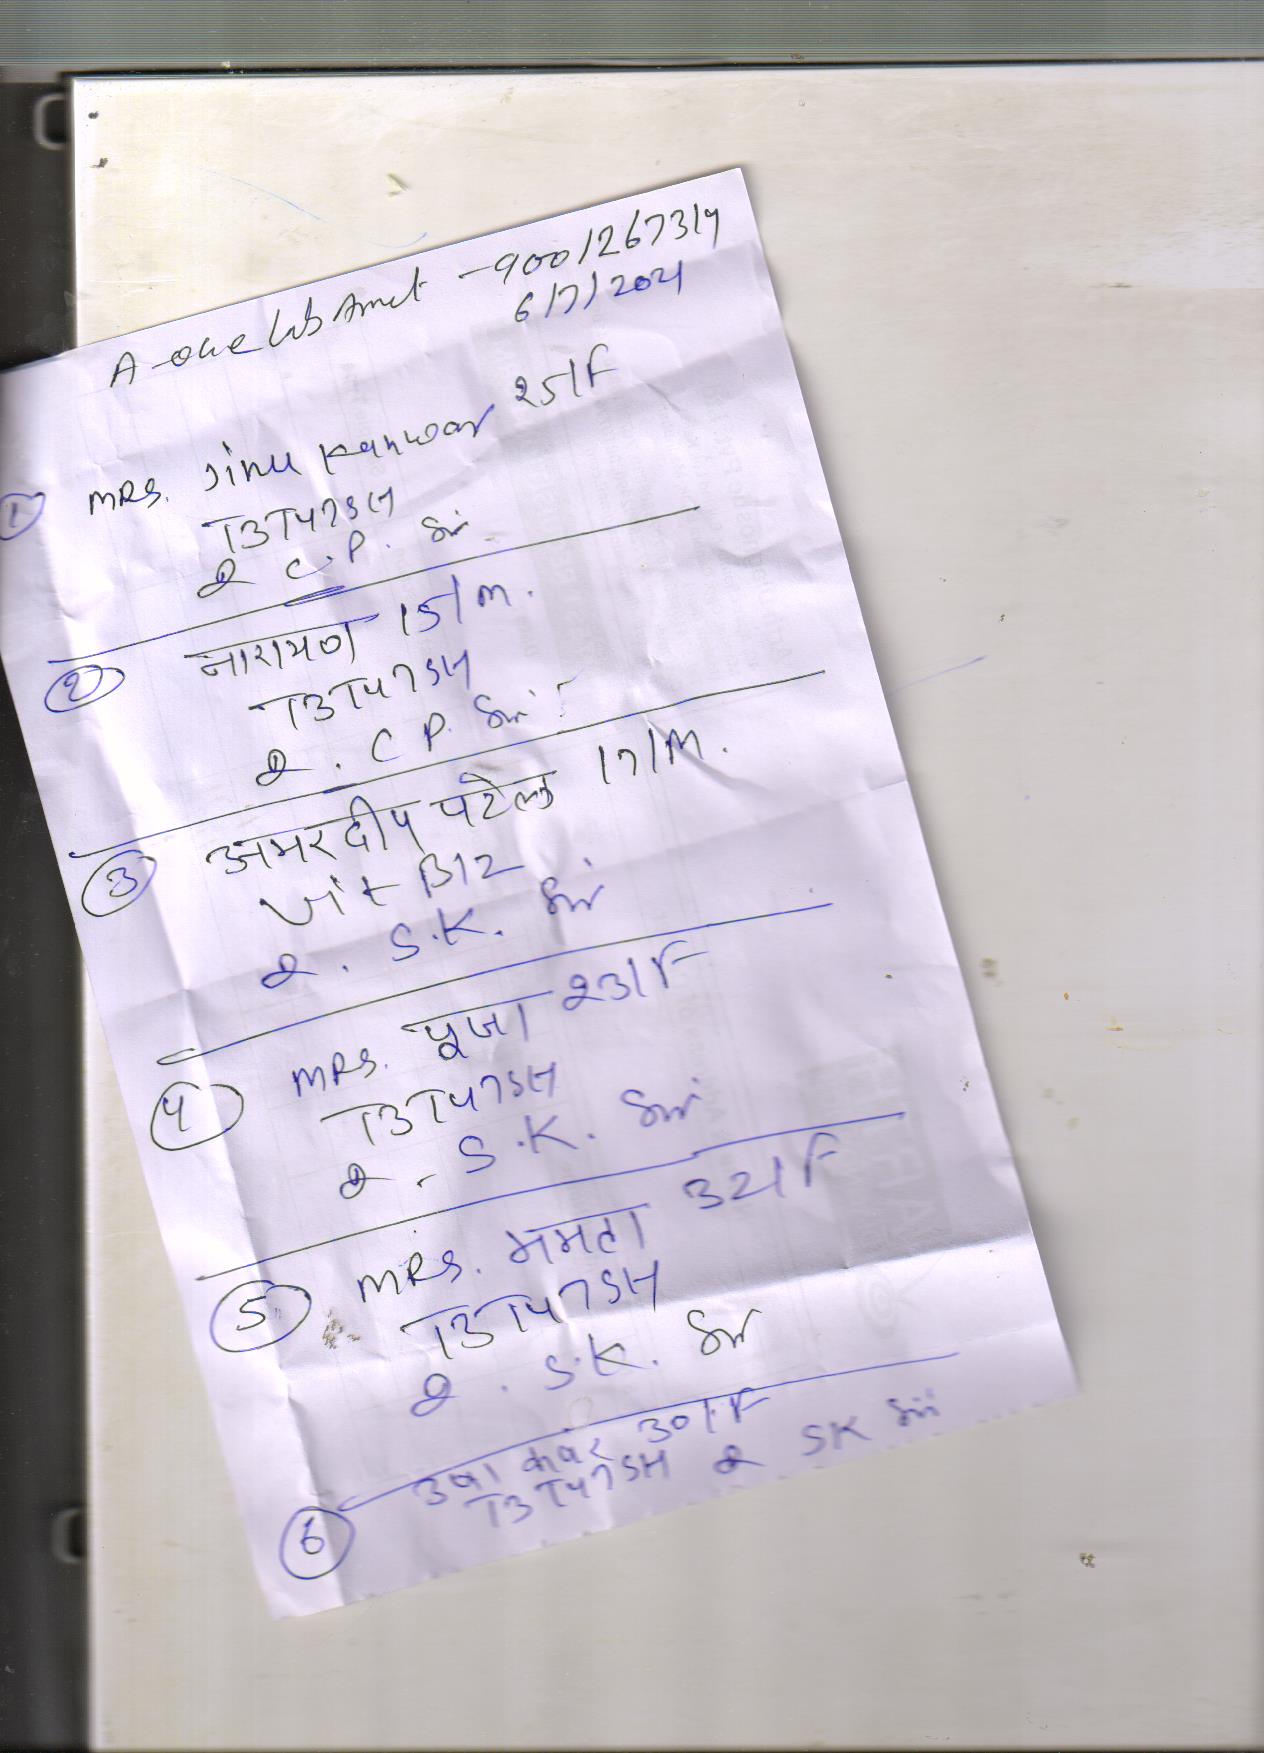 A one lab Amet - 9001267314
6/7/2021
① MRS. Jinu Kanwar 25/F
T3T47SH
C.P. Sir
② नारायण 15/M.
T3T47SH
C P. Sir
③ अमरदीप पटेल 17/M.
Vit B12
S.K. Sir
④ MRS. पूजा 23/F
T3T47SH
S.K. Sir
⑤ MRS. ममता 32/F
T3T47SH
S.K. Sir
⑥ उषा कंवर 30/F
T3T47SH SK Sir